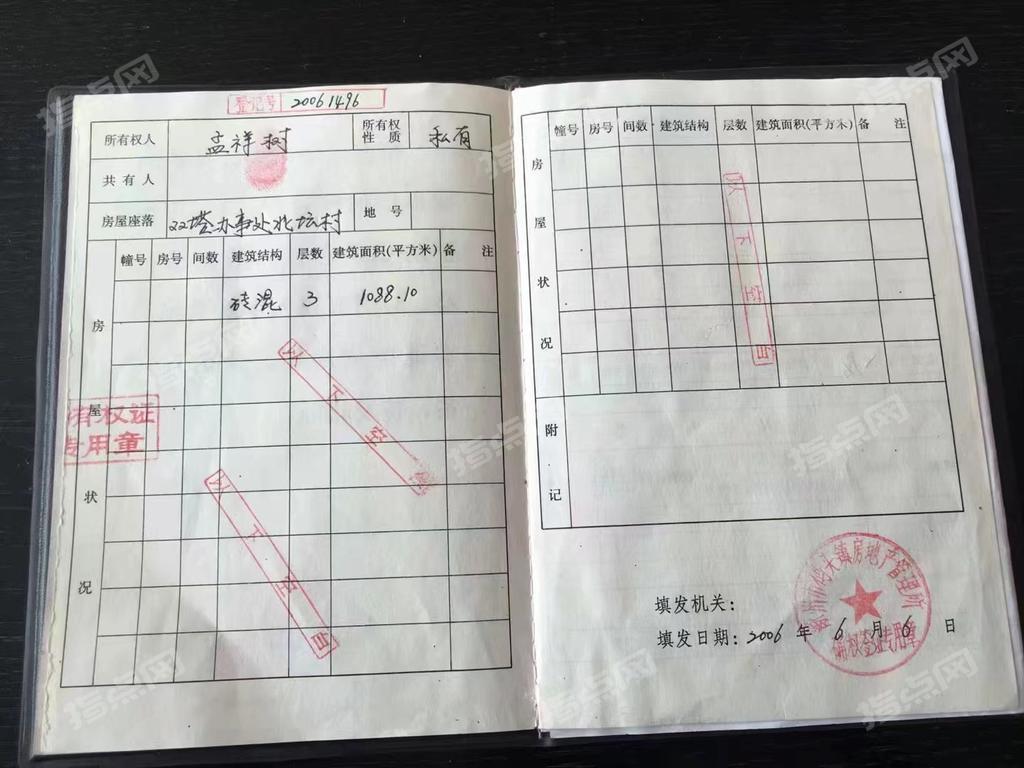 登记号 20061496
所有权人 孟祥树 所有权性质 私有
共有人
房屋座落 双塔办事处北坛村 地号
房屋状况
幢号 房号 间数 建筑结构 层数 建筑面积(平方米) 备注
砖混 3 1088.10
以下空白
以下空白
有权证
专用章
幢号 房号 间数 建筑结构 层数 建筑面积(平方米) 备注
房屋状况
以下空白
附记
镇房地产管理所
填发机关：
填发日期：2006年6月6日
指点网